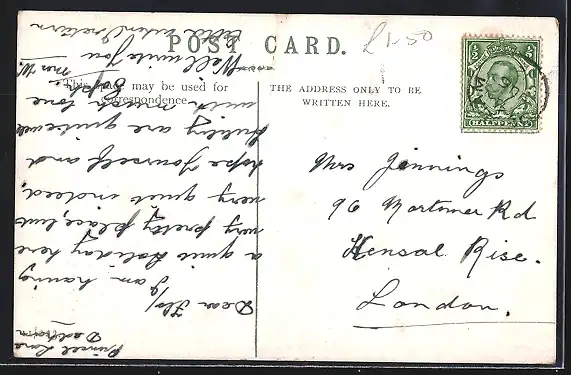 POST CARD.
£1-50
This space may be used for
correspondence.
THE ADDRESS ONLY TO BE
WRITTEN HERE.
HALFPENNY
Mrs Jennings
96 Mortimer Rd
Kensal Rise.
London.
Princes Lane
Dear Flo/
I am having
a quiet holiday here
very pretty place, but
very quiet indeed,
hope yourself and
family are quite well
with much love
Well write you
return